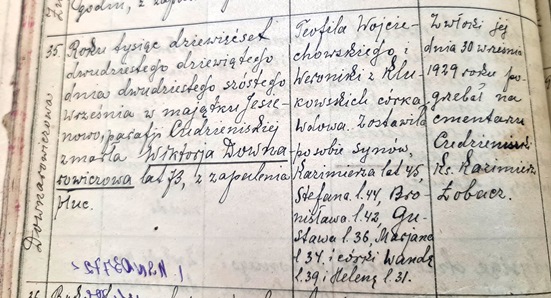 godzin, z zapalenia
35.
Downarowiczowa
Roku tysiąc dziewięćset
dwudziestego dziewiątego
dnia dwudziestego szóstego
Września w majątku Jesie-
nowo, parafji Cudzeniskiej
zmarła Wiktorja Downa-
rowiczowa lat 73, z zapalenia
płuc.
Teofila Wojcie-
chowskiego i
Weroniki z Klu-
kowskich córka,
Wdowa. Zostawiła
po sobie synów,
Kazimierza lat 45,
Stefana l. 44, Bro-
nisława l. 42, Gu-
stawa l. 36, Marjana
l. 34. i córki Wandę
l. 39 i Helenę l. 31.
Zwłoki jej
dnia 30 września
1929 roku po-
grzebał na
cmentarzu
Cudzeniskim
Ks. Kazimierz
Łobacz.
36.